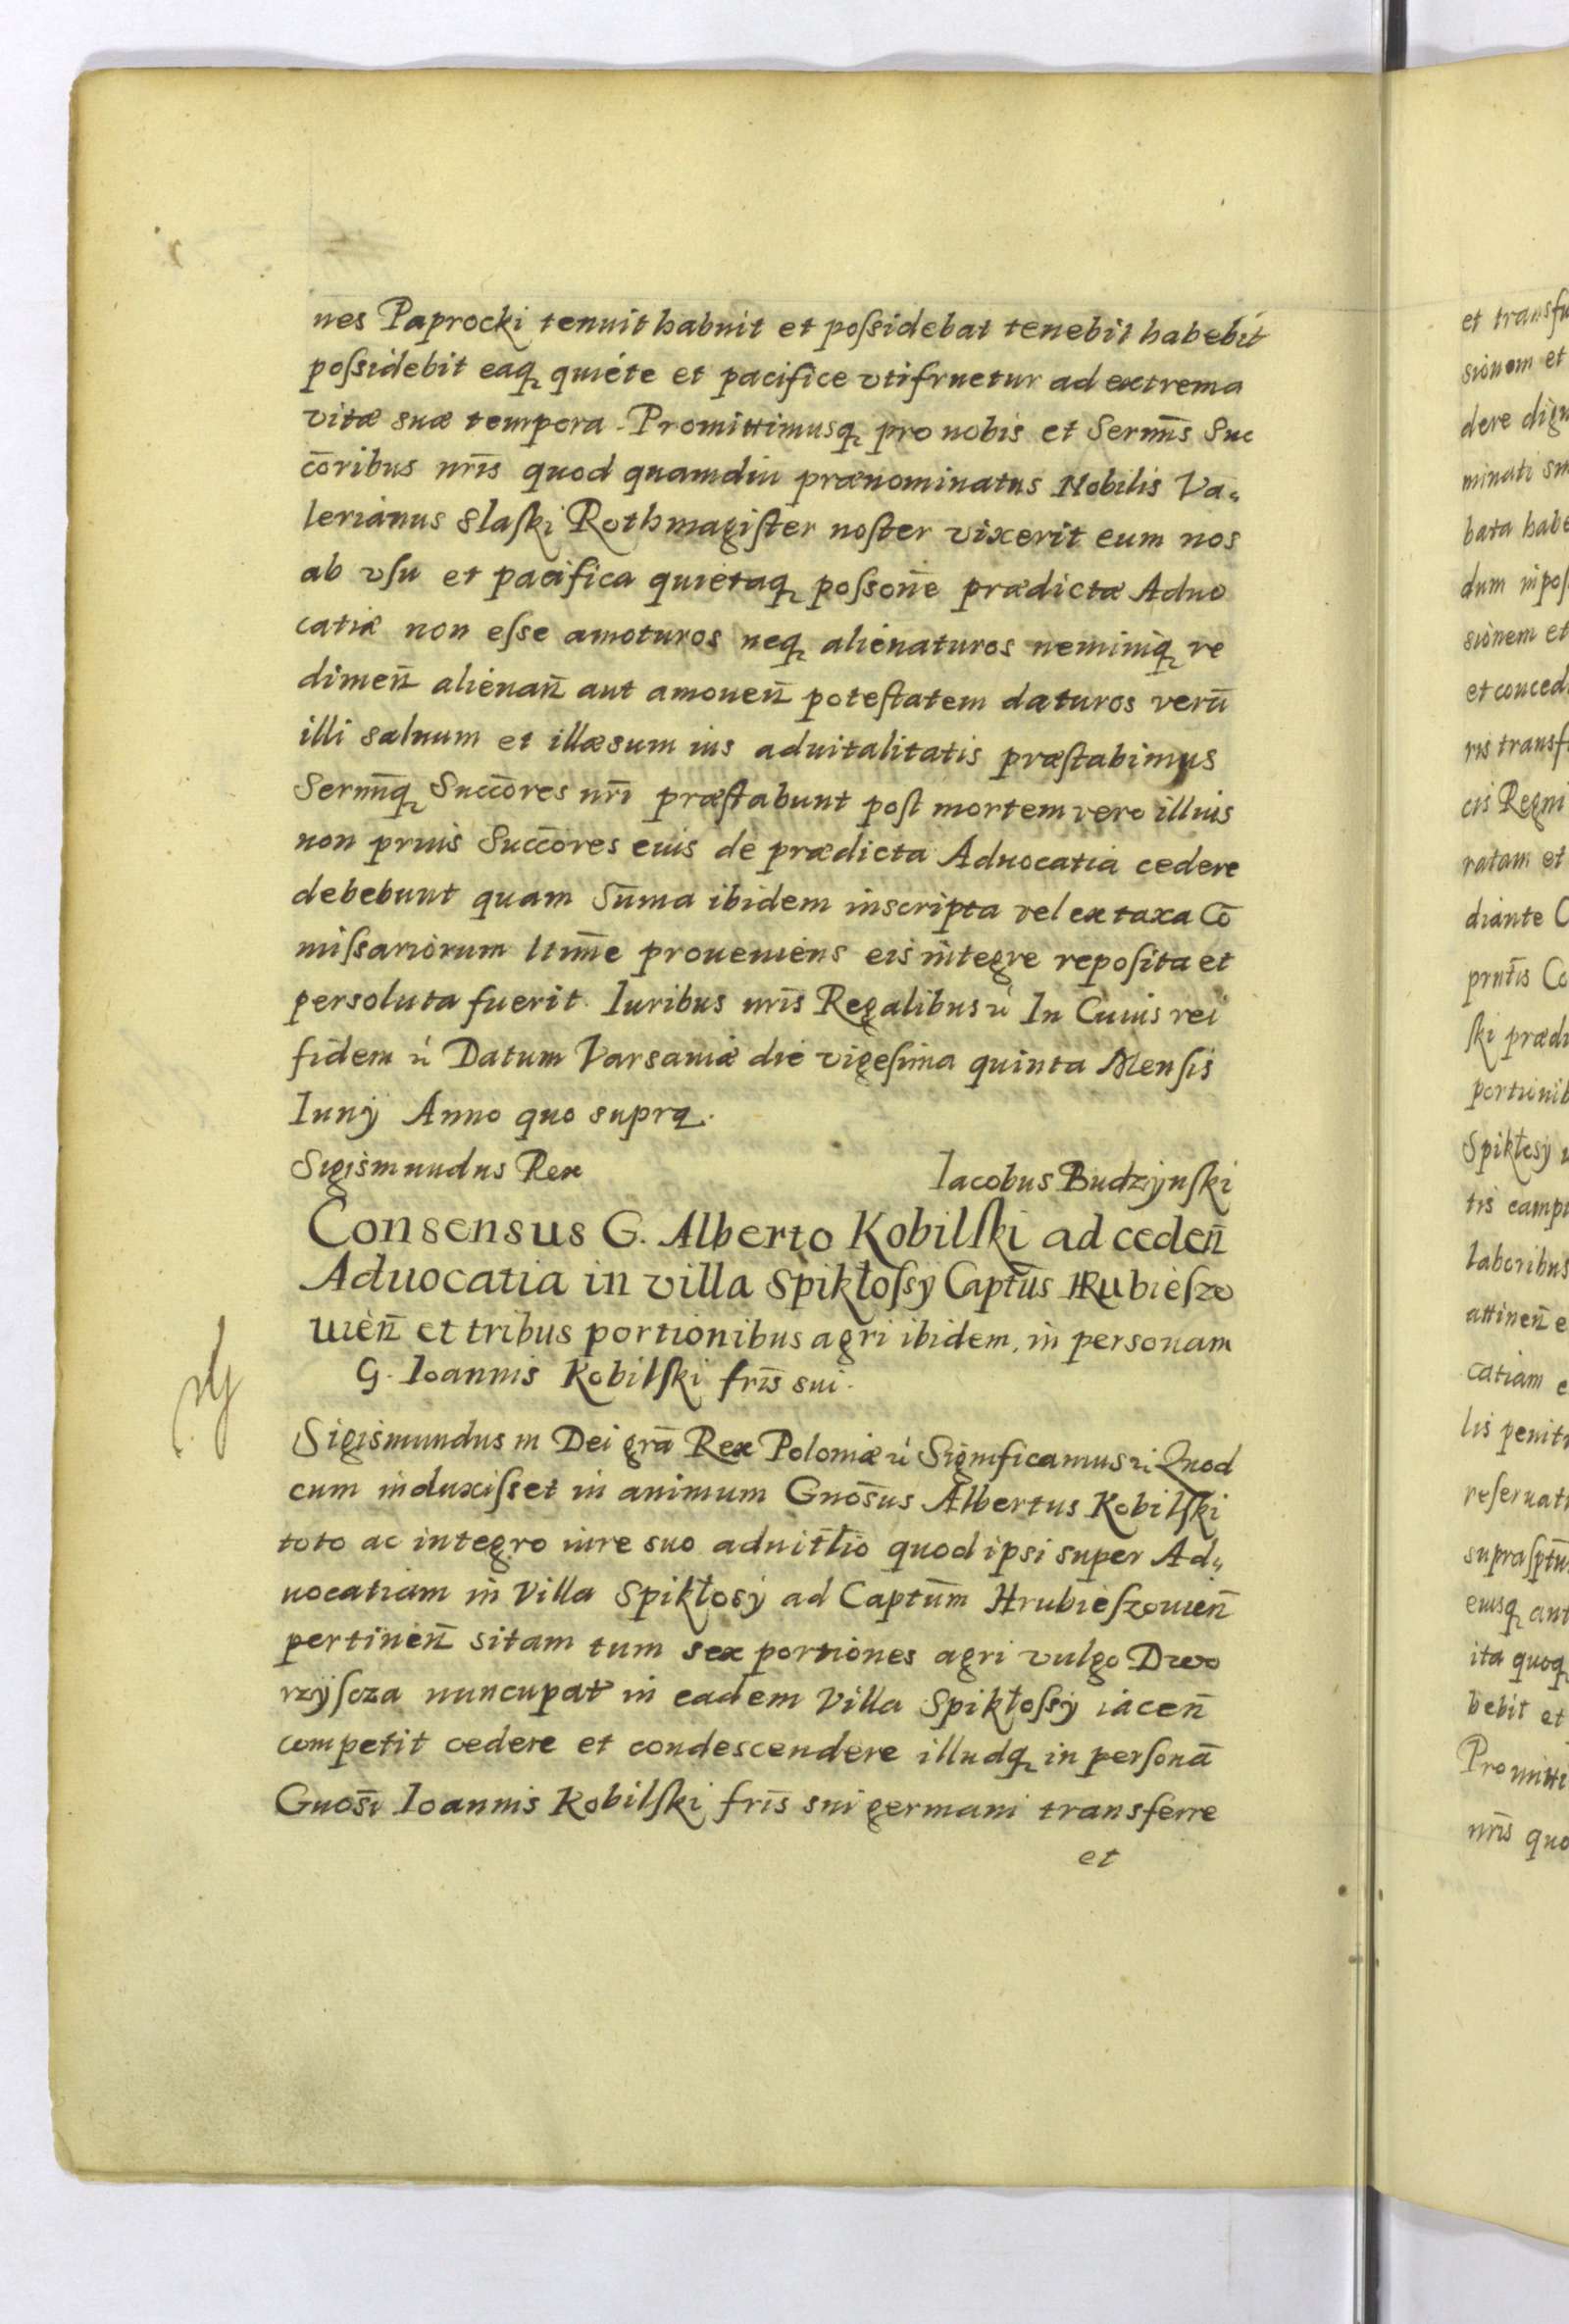 nes Paprocki tenuit habuit et poſsidebat tenebit habebit
poſsidebit eaq, quiéte et pacifice vtifruetur ad extrema
vitæ suæ tempora. Promittimusq, pro nobis et Sermis̄ Suc
cōribus nrīs quod quamdiu prænominatus Nobilis Va„
lerianus Slaſki Rothmagiſter noſter vixerit eum nos
ab vſu et pacifica quietaq, poſsonē prædictæ Aduo
catiæ non eſse amoturos neq, alienaturos neminiq, re
dimen̄ alienan̄ aut amouen̄ poteſtatem daturos verū
illi saluum et illæsum ius aduitalitatis præſtabimus
Sermīq, Succōres nrī præſtabunt poſt mortem vero illius
non prius Succōres eius de prædicta Aduocatia cedere
debebunt quam Sūma ibidem inscripta vel ex taxa Cō
miſsariorum ltimē proueniens eis integre repoſita et
persoluta fuerit. Iuribus nrīs Regalibus rć In Cuius rei
fidem rć Datum Varsauiæ die vigeſima quinta Menſis
Iunÿ Anno quo supra.
Sigismundus Rex
Iacobus Budzÿnſki
Consensus G. Alberto Kobilſki ad ceden̄
Aduocatia in villa Spikłoſsÿ Captūs HRubieſzo
uien̄ et tribus portionibus agri ibidem, in personam
G. Ioannis Kobilſki frīs sui.
Sigismundus III Dei grā Rex Poloniæ rć Significamus rć Quod
cum induxiſset in animum Gnosūs Albertus Kobilſki
toto ac integro iure suo aduitłio quod ipsi super Ad„
uocatiam in Villa Spikłosÿ ad Captūm Hrubieſzouien̄
pertinen̄ sitam tum sex portiones agri vulgo Dwo
rzÿſcza nuncupat in eadem Villa Spikłoſsÿ iacen̄
competit cedere et condescendere illudq, in perſonā
Gnosī Ioannis Kobilſki frīs sui germani transferre
et
et transfu
sionem et
dere dign
minati su
bata habe
dum inpoſ
sionem et
et conced
ris transf
cis Regni
ratam et
diante C
prntīs Co
ſki prædi
portionib
Spikłesÿ
tis camp
laboribus
attinen̄ e
catiam e
lis penit
reſeruat
supraſptū
eiusq, ant
ita quoq,
bebit et
Promitti
nrīs quo